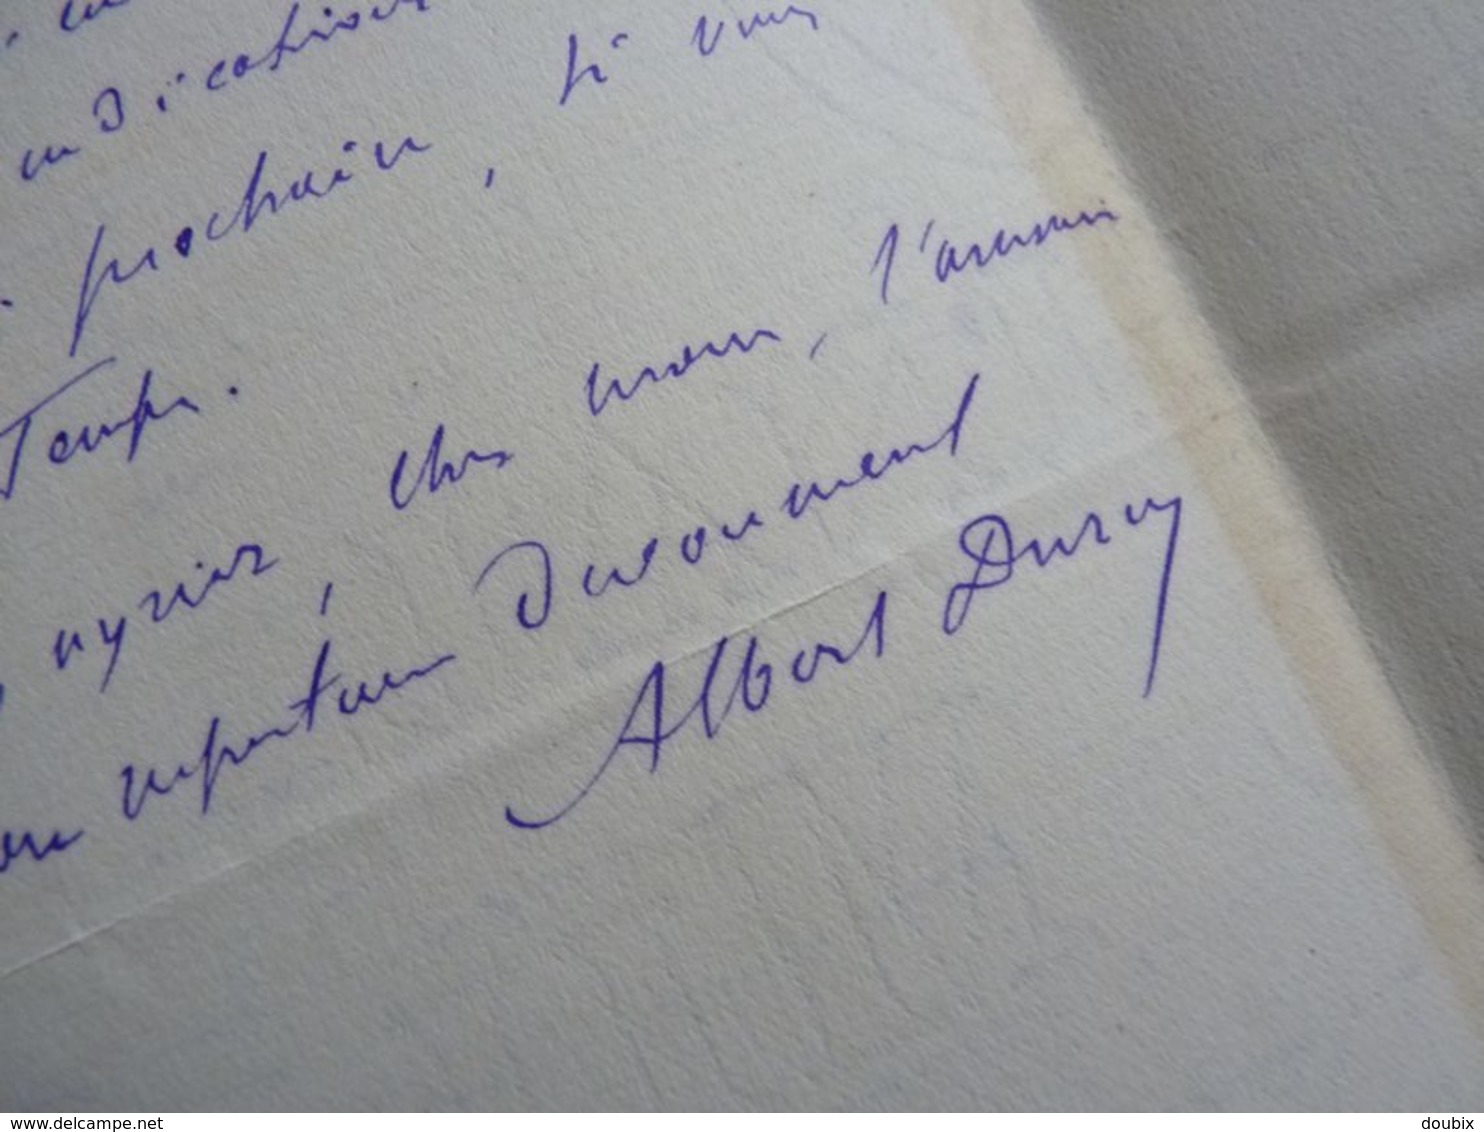 indications
prochain, si vous
Temps.
agréer, cher mon, l'assurance
mon respectueux dévouement
Albert Duruy
www.delcampe.net
doubix